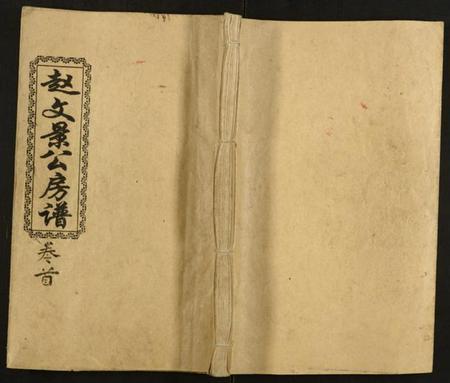 赵文景公房谱
卷首